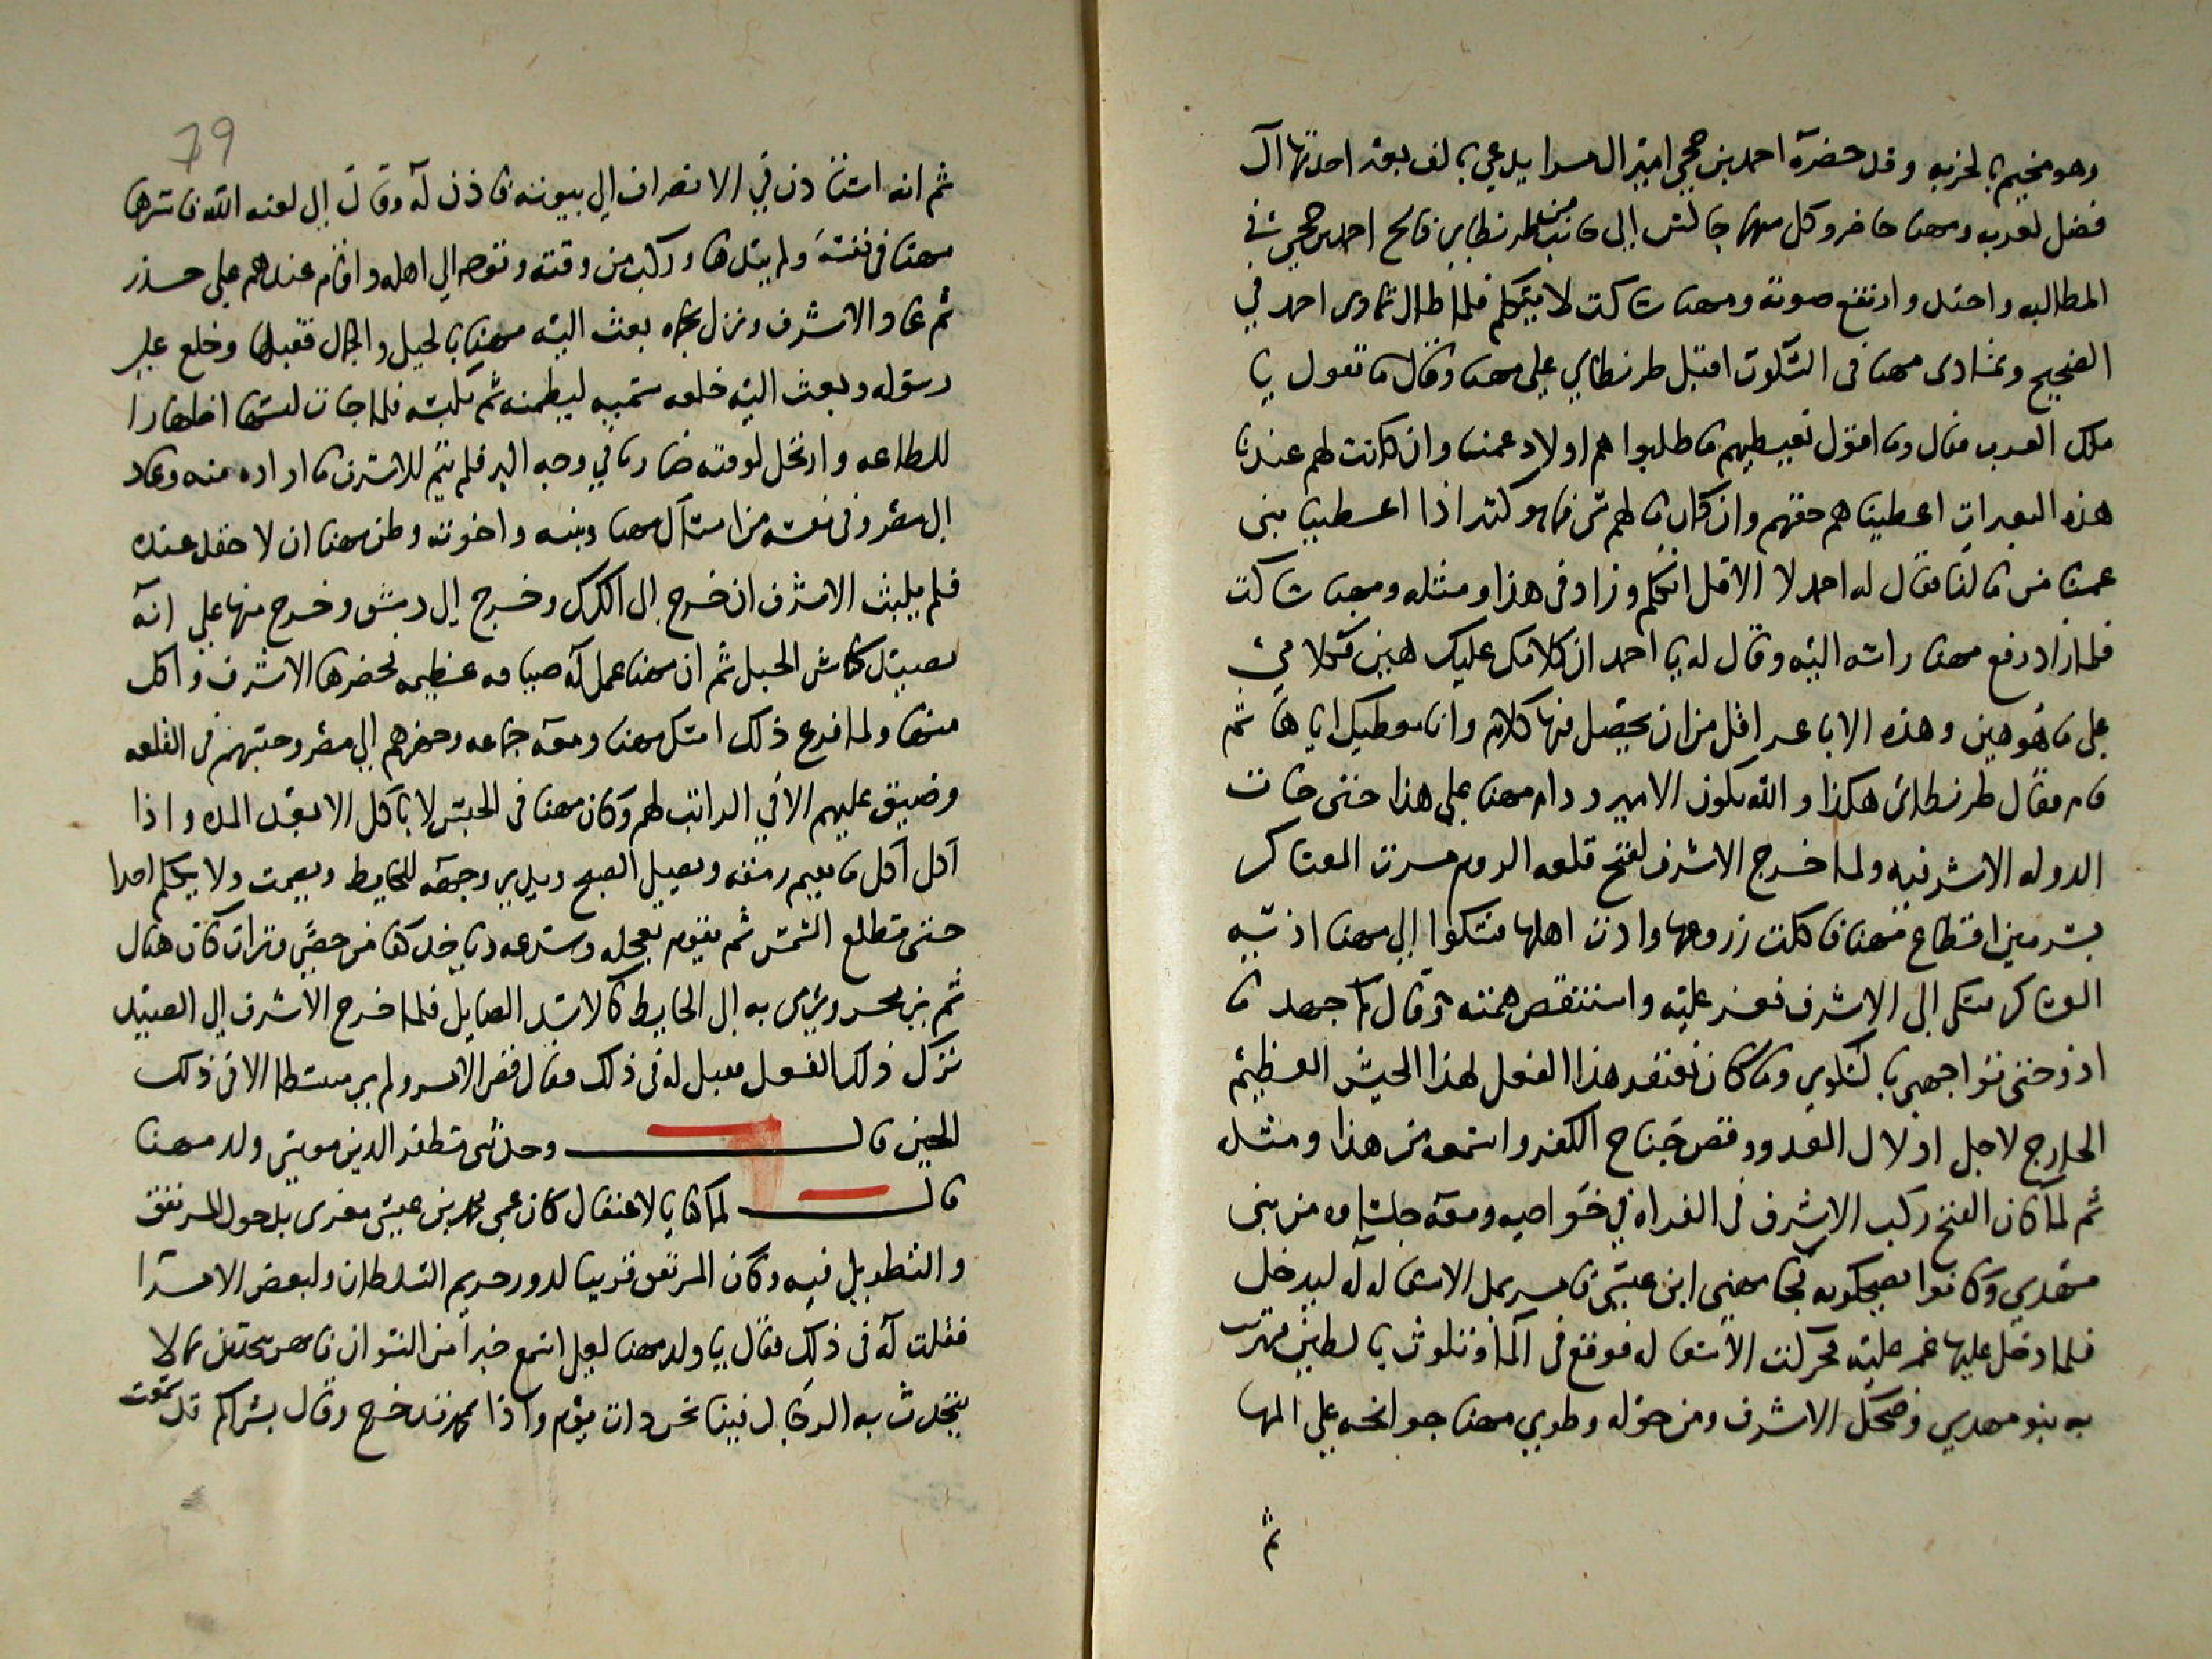 وهو مخيم بالخربه وقد حضرة احمد بن حجي امير ال مرا يدعي بالف بعير اخذتها آل
فضل لعربه ومهنا حاضر وكل منهما جالس إلى جانب من طرنطاي فالح احمد بن حجي في
المطالبه واحتد وارتفع صوته ومهنا ساكت لا يتكلم فلما طال تمادى احمد في
الضجيج وتمادى مهنا في السكوت اقبل طرنطاي على مهنا وقال ما تقول يا
ملك العرب فقال وما اقول نعطيهم ما طلبوا هم اولاد عمنا وان كانت لهم عندنا
هذه البعيرات اعطيناهم حقهم وان كان ما لهم شي فما هو كثير اذا اعطينا بني
عمنا من مالنا فقال له احمد لا الا قل اتكلم وزاد في هذا ومثله ومهنا ساكت
فلما زاد رفع مهنا راسه اليه وقال له يا احمد ان كلامك عليك هين كلامي
علي ما هو هين وهذه الاباعر اقل من ان يحصل فيها كلام وانا معطيك اياها ثم
قام فقال طرنطاي هكذا والله يكون الامير ودام مهنا على هذا حتى جات
الدوله الاشرفيه ولما خرج الاشرف لفتح قلعه الروم مرت العساكر
بسرمين اقطاع مهنا فاكلت زروعها واذت اهلها فشكوا إلى مهنا اذيه
العساكر فشكى الى الاشرف فعز عليه واستنقص همته وقال كم جهد ما
اذو حتى تواجهني بالشكوى وما كان تغتفر هذا الفعل لهذا الجيش العظيم
الخارج لاجل اذلال العدو وقص جناح الكفر واسمعه من هذا ومثله
ثم لما كان الفتح ركب الاشرف في الفراه في خواصه ومعه جلسا وه من بني
مهدي وكانوا يضحكونه فجا مهنى ابن عيسى فامر بمد الاسقاله له ليدخل
فلما دخل عليها غمز عليه فحركت الاسقاله فوقع في الما وتلوث بالطين فهزت
به بنو مهدي وضحك الاشرف ومن حوله وطوي مهنا جوانحه علي المها
ثم
79
ثم انه استاذن في الانصراف إلى بيوته فاذن له وقال إلى لعنه الله فاسرها
مهنا في نفسه ولم يبدها وركب من وقته وتوجه إلى اهله واقام عندهم علي حذر
ثم عاد الاشرف ونزل بحماه بعث اليه مهنا بالخيل والجمال فقبلها وخلع على
رسوله وبعث اليه خلعه سنيه ليطمنه ثم يكبسه فلما جات لبسها اظهارا
للطاعه وارتحل لوقته ضاربا في وجه البر فلم يتم للاشرف ما اراده منه وعاد
الى مصر وفي نفسه من امساك مهنا وبنيه واخوته وظن مهنا ان لا حقد عنده
فلم يلبث الاشرف ان خرج الى الكرك وخرج إلى دمشق وخرج منها علي انه
يصيد كباش الجبل ثم ان مهنا عمل له ضيافه عظيمه فحضرها الاشرف واكل
منها ولما فرغ ذلك امسك مهنا ومعه جماعه وجهزهم إلى مصر وحبسهم في القلعه
وضيق عليهم الا في الراتب لهم وكان مهنا في الحبس لا ياكل الا بعد المده واذا
اكل اكل ما يقيم رمقه ويصلي الصبح ويدير وجهه للحايط ويصمت ولا يكلم احدا
حتى تطلع الشمس ثم يقوم بعجله وسرعه وياخذ كفا من حصى وتراب كان هناك
ثم يزمجر ويرمي به إلى الحايط كالاسد الصايل فلما خرج الاشرف إلى الصيد
ترك ذلك الفعل فقيل له في ذلك فقال قضى الامر ولم ير مبتسطا الا في ذلك
الحين قال وحدثني مظفر الدين موسى ولد مهنا
قال لما كنا بالاعتقال كان عمى محمد بن عيسى مغرى بدخول المرتفق
والتطويل فيه وكان المرتفق قريبا لدور حريم السلطان ولبعض الامرا
فقلت له في ذلك فقال يا ولد مهنا لعلي اسمع خبرا من النسوان فانهن يتحدثن بما لا
يتحدث به الرجال فبينا نحن ذات يوم واذا بمحمد قد خرج وقال بشراكم قد سمعت